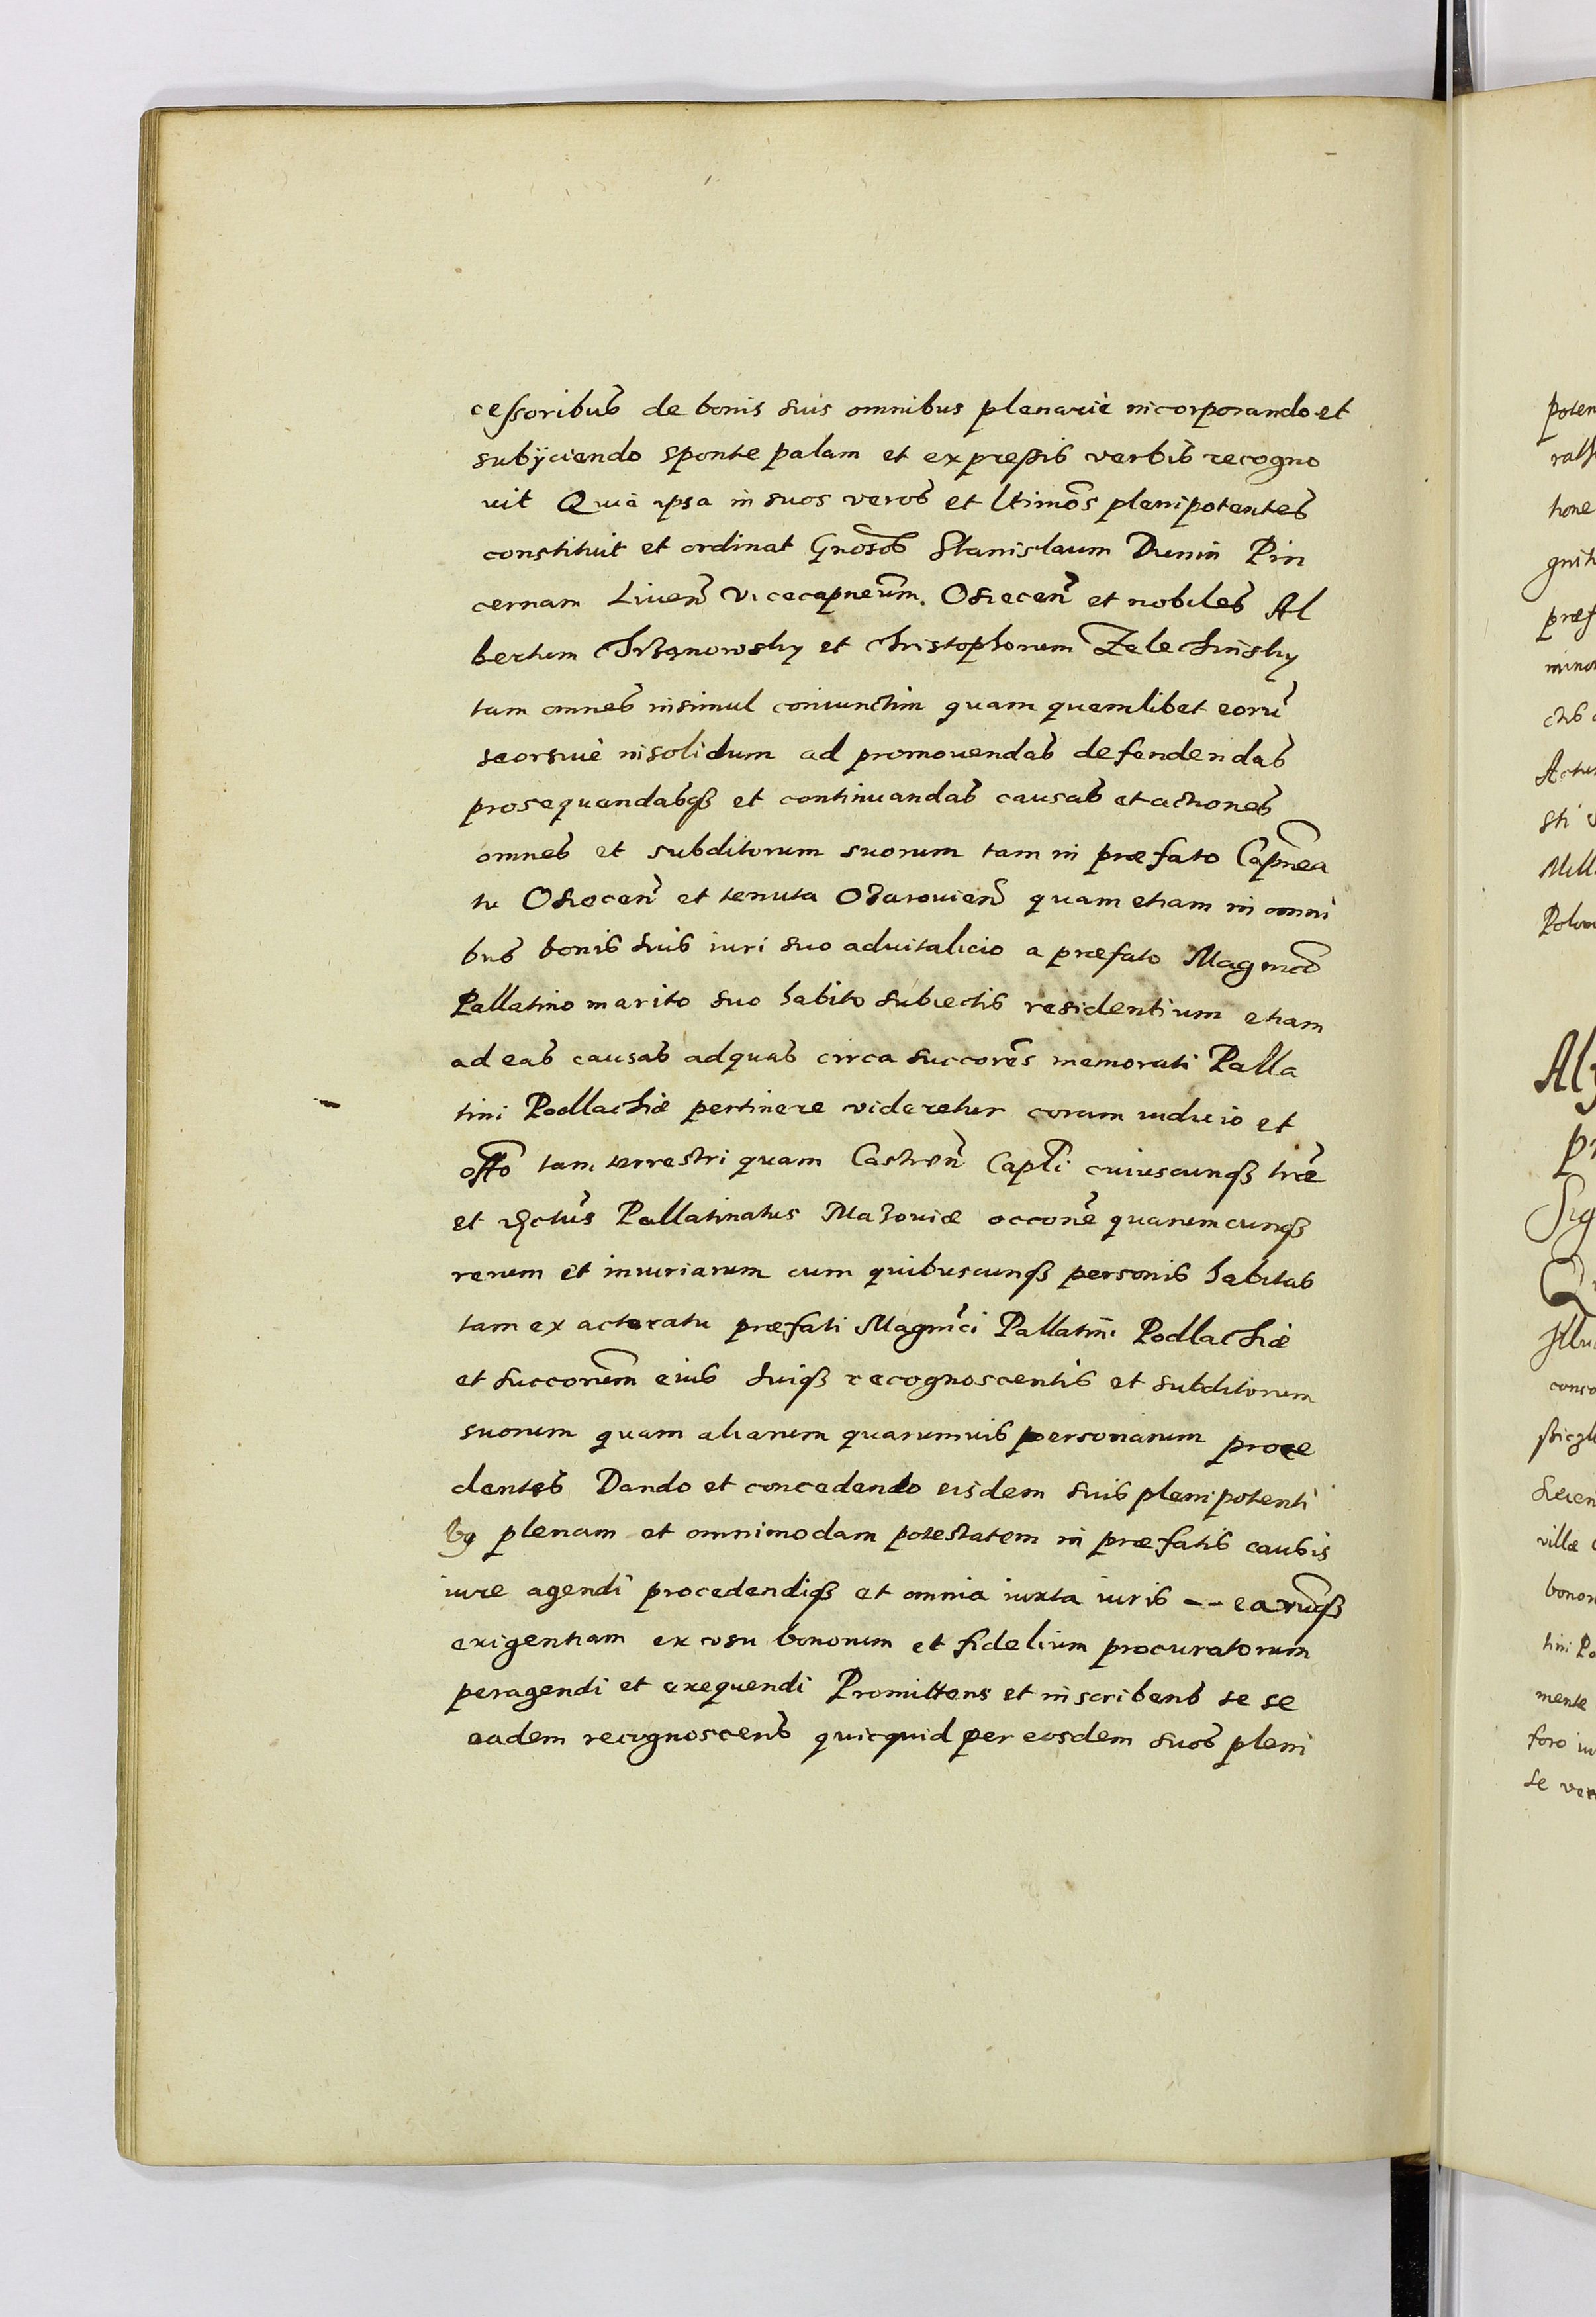 cessoribus de bonis suis omnibus plenariè incorporando et
subÿciendo sponte palam et expressis verbis recogno
uit Quià ipsa in suos veros et ltimos plenipotentes
constituit et ordinat Gnosos Stanislaum Dunin Pin
cernam Liuen Vicecapneum. Osiecen et nobiles Al
bertum Chrzanowsky et Christophorum Zelechinsky
tam omnes insimul coniunctim quam quemlibet eorū
seorsiuè insolidum ad promouendas defendendas
prosequendasq3 et continuandas causas et actiones
omnes et subditorum suorum tam in præfato Capnea
tu Osiecen et tenuta Ozarouien quam etiam in omni
bus bonis suis iuri suo aduitalicio a præfato Magnco
Pallatino marito suo habito subiectis residentium etiam
ad eas causas ad quas circa succores memorati Palla
tini Podlachiæ pertinere videretur coram iudicio et
offo tam terrestri quam Castren Capli cuiuscunq3 træ
et Dictus Pallatinatus Mazouiæ occone quarumcunq3
rerum et iniuriarum cum quibuscunq3 personis habitas
tam ex actoratu præfati Magnici Pallatini Podlachiæ
et succorum eius suiq3 recognoscentis et subditorum
suorum quam aliarum quarumuis personarum proce
dentes Dando et concedendo eisdem suis plenipotenti
b9 plenam et omnimodam potestatem in præfatis causis
iure agendi procedendiq3 et omnia iuxta iuris -- earumq3
exigentiam ex cosu bonorum et fidelium procuratorum
peragendi et exequendi Promittens et inscribens se se
eadem recognoscens quicquid per eosdem suos pleni